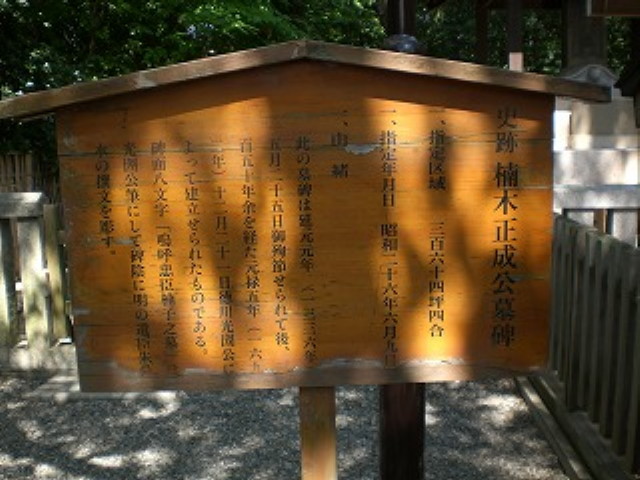 史跡 楠木正成公墓碑
一、指定区域 三百六十四坪四合
一、指定年月日 昭和二十六年六月九日
一、由緒
此の墓碑は延元元年（一三三六年
五月二十五日御殉節せられて後、
百五十年余を経た元禄五年（一六九
二年）十二月二十一日徳川光圀公に
よって建立せられたものである。
碑面八文字「嗚呼忠臣楠子之墓」
光圀公筆にして碑陰に明の遺臣朱
水の撰文を彫す。